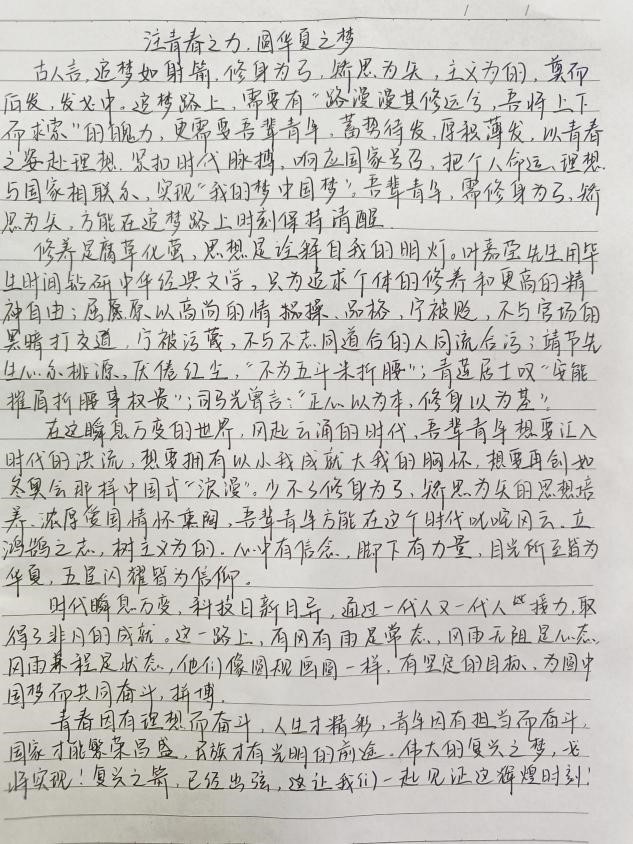 注青春之力,圆华夏之梦
古人言,追梦如射箭,修身为弓,矫思为矢,主义为的,奠而
后发,发必中。追梦路上,需要有“路漫漫其修远兮,吾将上下
而求索”的魄力,更需要吾辈青年,蓄势待发,厚积薄发,以青春
之姿赴理想.紧扣时代脉搏,响应国家号召,把个人命运、理想
与国家相联系,实现“我的梦中国梦”。吾辈青年,需修身为弓,矫
思为矢,方能在追梦路上时刻保持清醒.
修养是腐草化萤,思想是诠释自我的明灯。叶嘉莹先生用毕
生时间钻研中华经典文学,只为追求个体的修养和更高的精
神自由;屈原以高尚的情操、品格,宁被贬,不与官场的
黑暗打交道,宁被污蔑,不与不志同道合的人同流合污;靖节先
生心系桃源,厌倦红尘,“不为五斗米折腰”;青莲居士叹“安能
摧眉折腰事权贵”;司马光曾言:“正心以为本,修身以为基”。
在这瞬息万变的世界,风起云涌的时代,吾辈青年想要汇入
时代的洪流,想要拥有以小我成就大我的胸怀,想要再创如
冬奥会那样中国式“浪漫”。少不了修身为弓,矫思为矢的思想培
养.浓厚爱国情怀熏陶,吾辈青年方能在这个时代叱咤风云.立
鸿鹄之志,树主义为的.心中有信念,脚下有力量,目光所至皆为
华夏,五星闪耀皆为信仰。
时代瞬息万变,科技日新月异,通过一代人又一代人的接力,取
得了非凡的成就。这一路上,有风有雨是常态,风雨无阻是心态,
风雨兼程是状态,他们像圆规画圆一样,有坚定的目标、为圆中
国梦而共同奋斗,拼搏.
青春因有理想而奋斗,人生才精彩,青年因有担当而奋斗,
国家才能繁荣昌盛,民族才有光明的前途.伟大的复兴之梦,必
将实现!复兴之箭,已经出弦,这让我们一起见证这辉煌时刻!